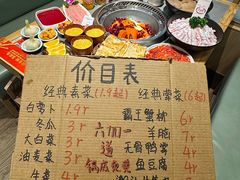 价目表
经典素菜(1.9起) 经典荤菜(6起)
白萝卜 1.9r
冬瓜 3r
大白菜 3r
油麦菜 3r
生菜
六加一
道
锅底免费
霸王蟹柳 6r
羊脑 7r
无骨鸭掌
鱼豆腐